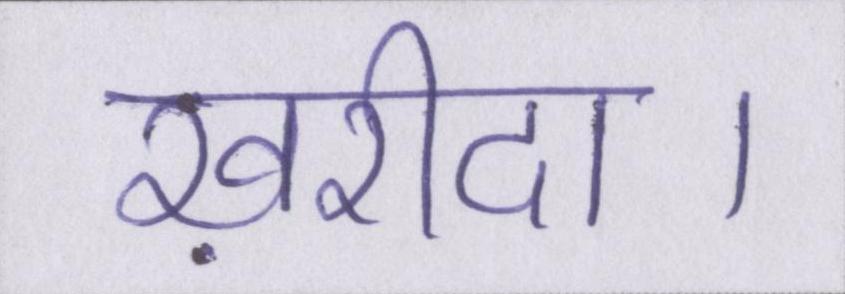 ख़रीदा ।